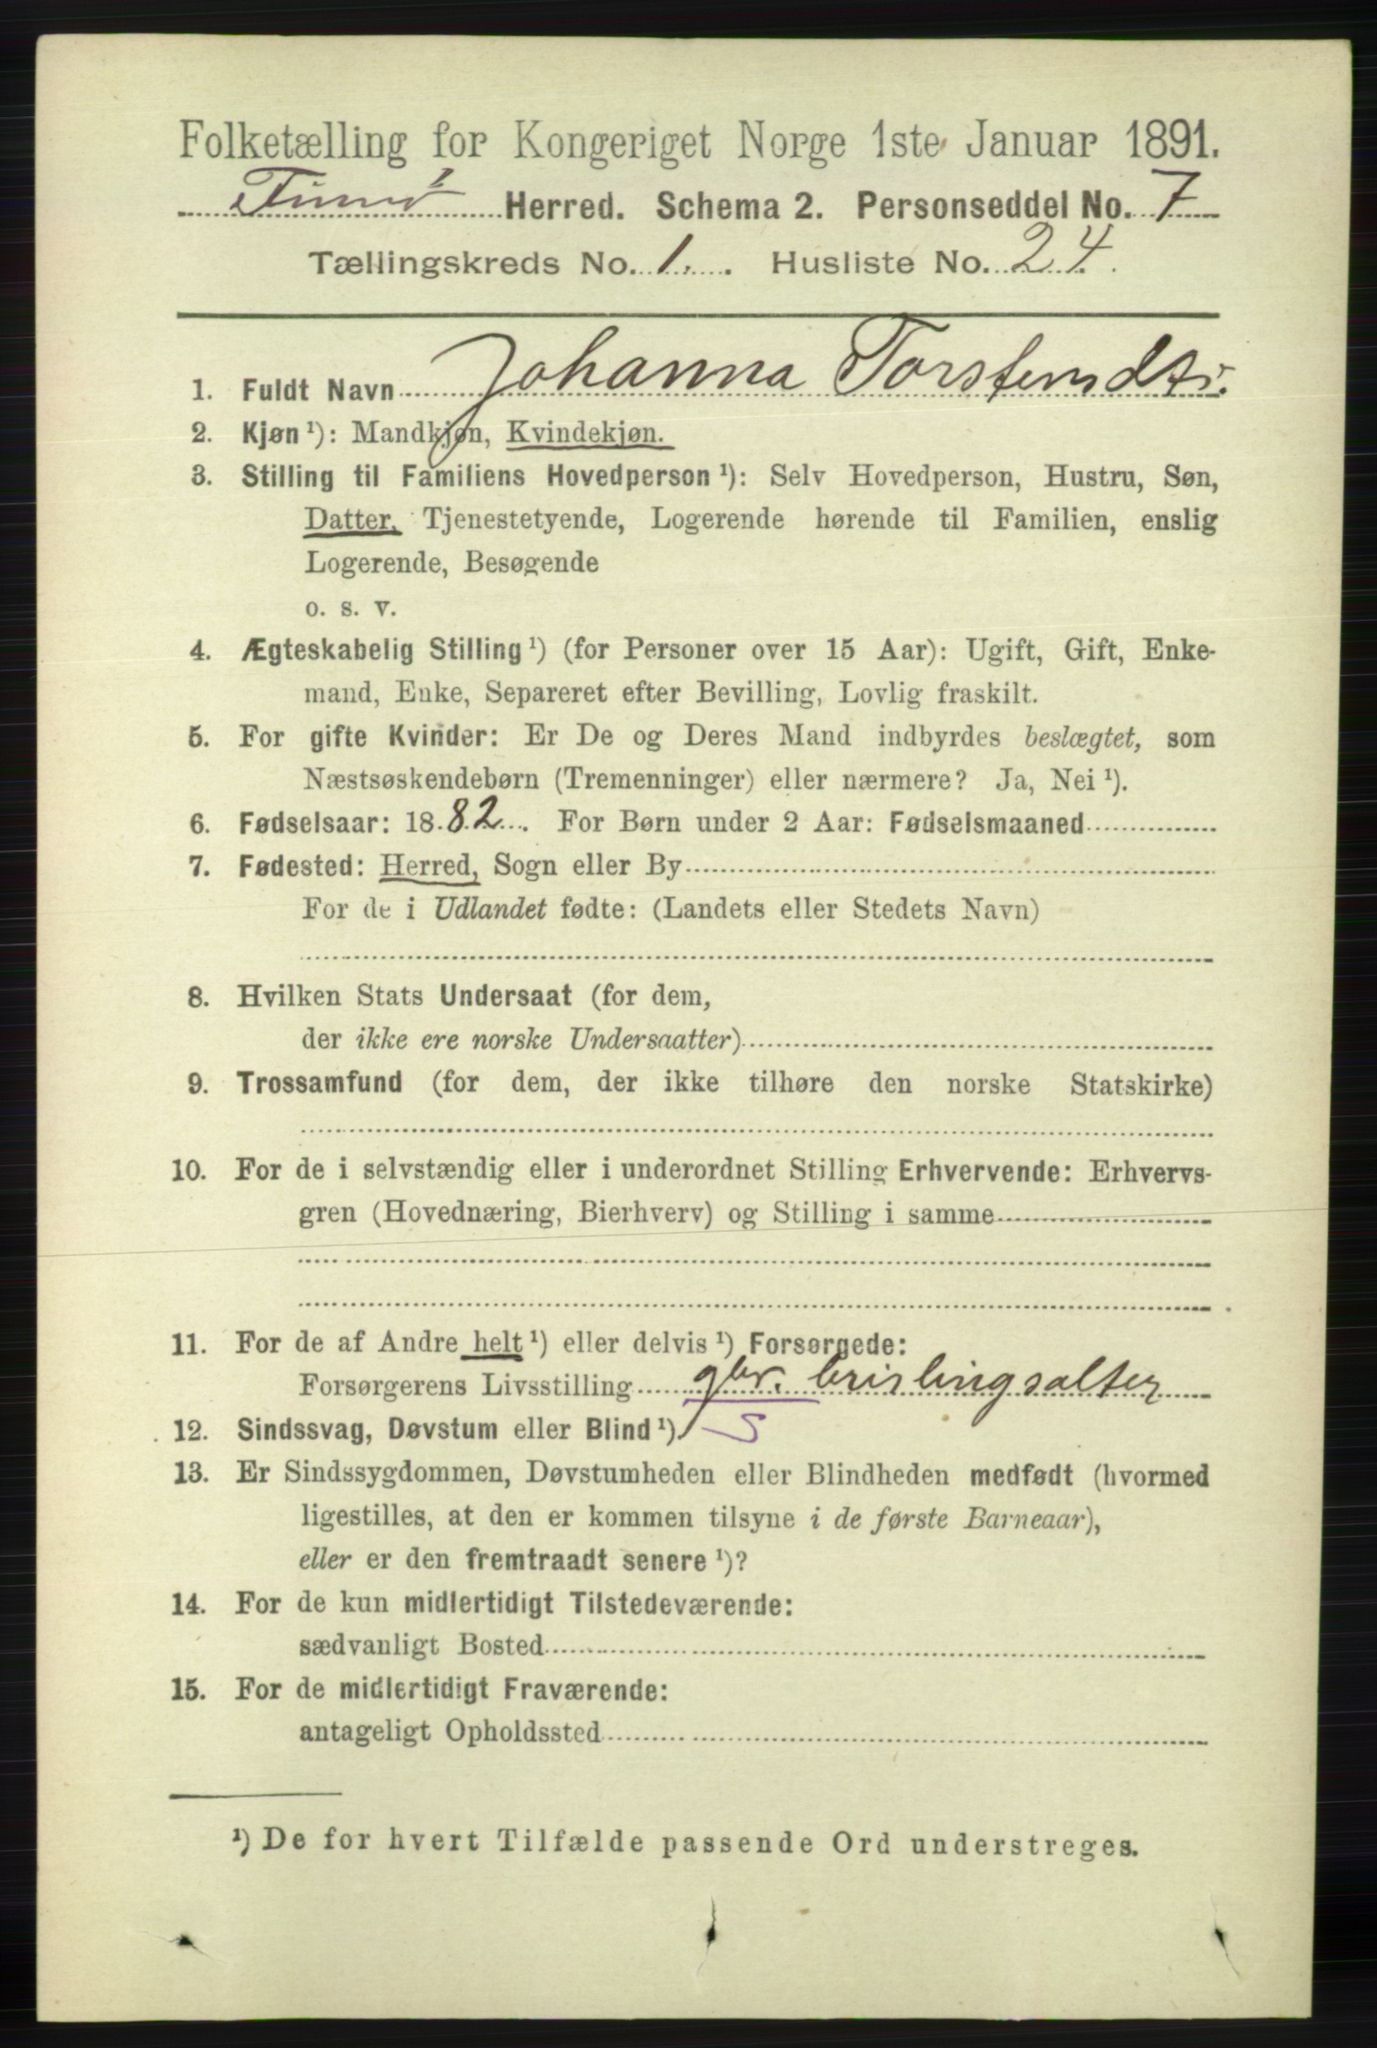 Folketælling for Kongeriget Norge 1ste Januar 1891.
Finnø Herred. Schema 2. Personseddel No. 7
Tællingskreds No. 1. Husliste No. 24.
1. Fuldt Navn Johanna Torstensdtr.
2. Kjøn ¹): Mandkjøn, Kvindekjøn.
3. Stilling til Familiens Hovedperson ¹): Selv Hovedperson, Hustru, Søn,
Datter, Tjenestetyende, Logerende hørende til Familien, enslig
Logerende, Besøgende
o. s. v.
4. Ægteskabelig Stilling ¹) (for Personer over 15 Aar): Ugift, Gift, Enke-
mand, Enke, Separeret efter Bevilling, Lovlig fraskilt.
5. For gifte Kvinder: Er De og Deres Mand indbyrdes beslægtet, som
Næstsøskendebørn (Tremenninger) eller nærmere? Ja, Nei ¹).
6. Fødselsaar: 1882. For Børn under 2 Aar: Fødselsmaaned
7. Fødested: Herred, Sogn eller By
For de i Udlandet fødte: (Landets eller Stedets Navn)
8. Hvilken Stats Undersaat (for dem,
der ikke ere norske Undersaatter)
9. Trossamfund (for dem, der ikke tilhøre den norske Statskirke)
10. For de i selvstændig eller i underordnet Stilling Erhvervende: Erhvervs-
gren (Hovednæring, Bierhverv) og Stilling i samme
11. For de af Andre helt ¹) eller delvis ¹) Forsørgede:
Forsørgerens Livsstilling gbr. brislingsalter
12. Sindssvag, Døvstum eller Blind ¹) S
13. Er Sindssygdommen, Døvstumheden eller Blindheden medfødt (hvormed
ligestilles, at den er kommen tilsyne i de første Barneaar),
eller er den fremtraadt senere ¹)?
14. For de kun midlertidigt Tilstedeværende:
sædvanligt Bosted
15. For de midlertidigt Fraværende:
antageligt Opholdssted
¹) De for hvert Tilfælde passende Ord understreges.